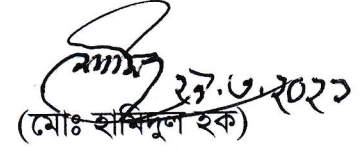 ২৯.৩.২০২১
(মোঃ হামিদুল হক)